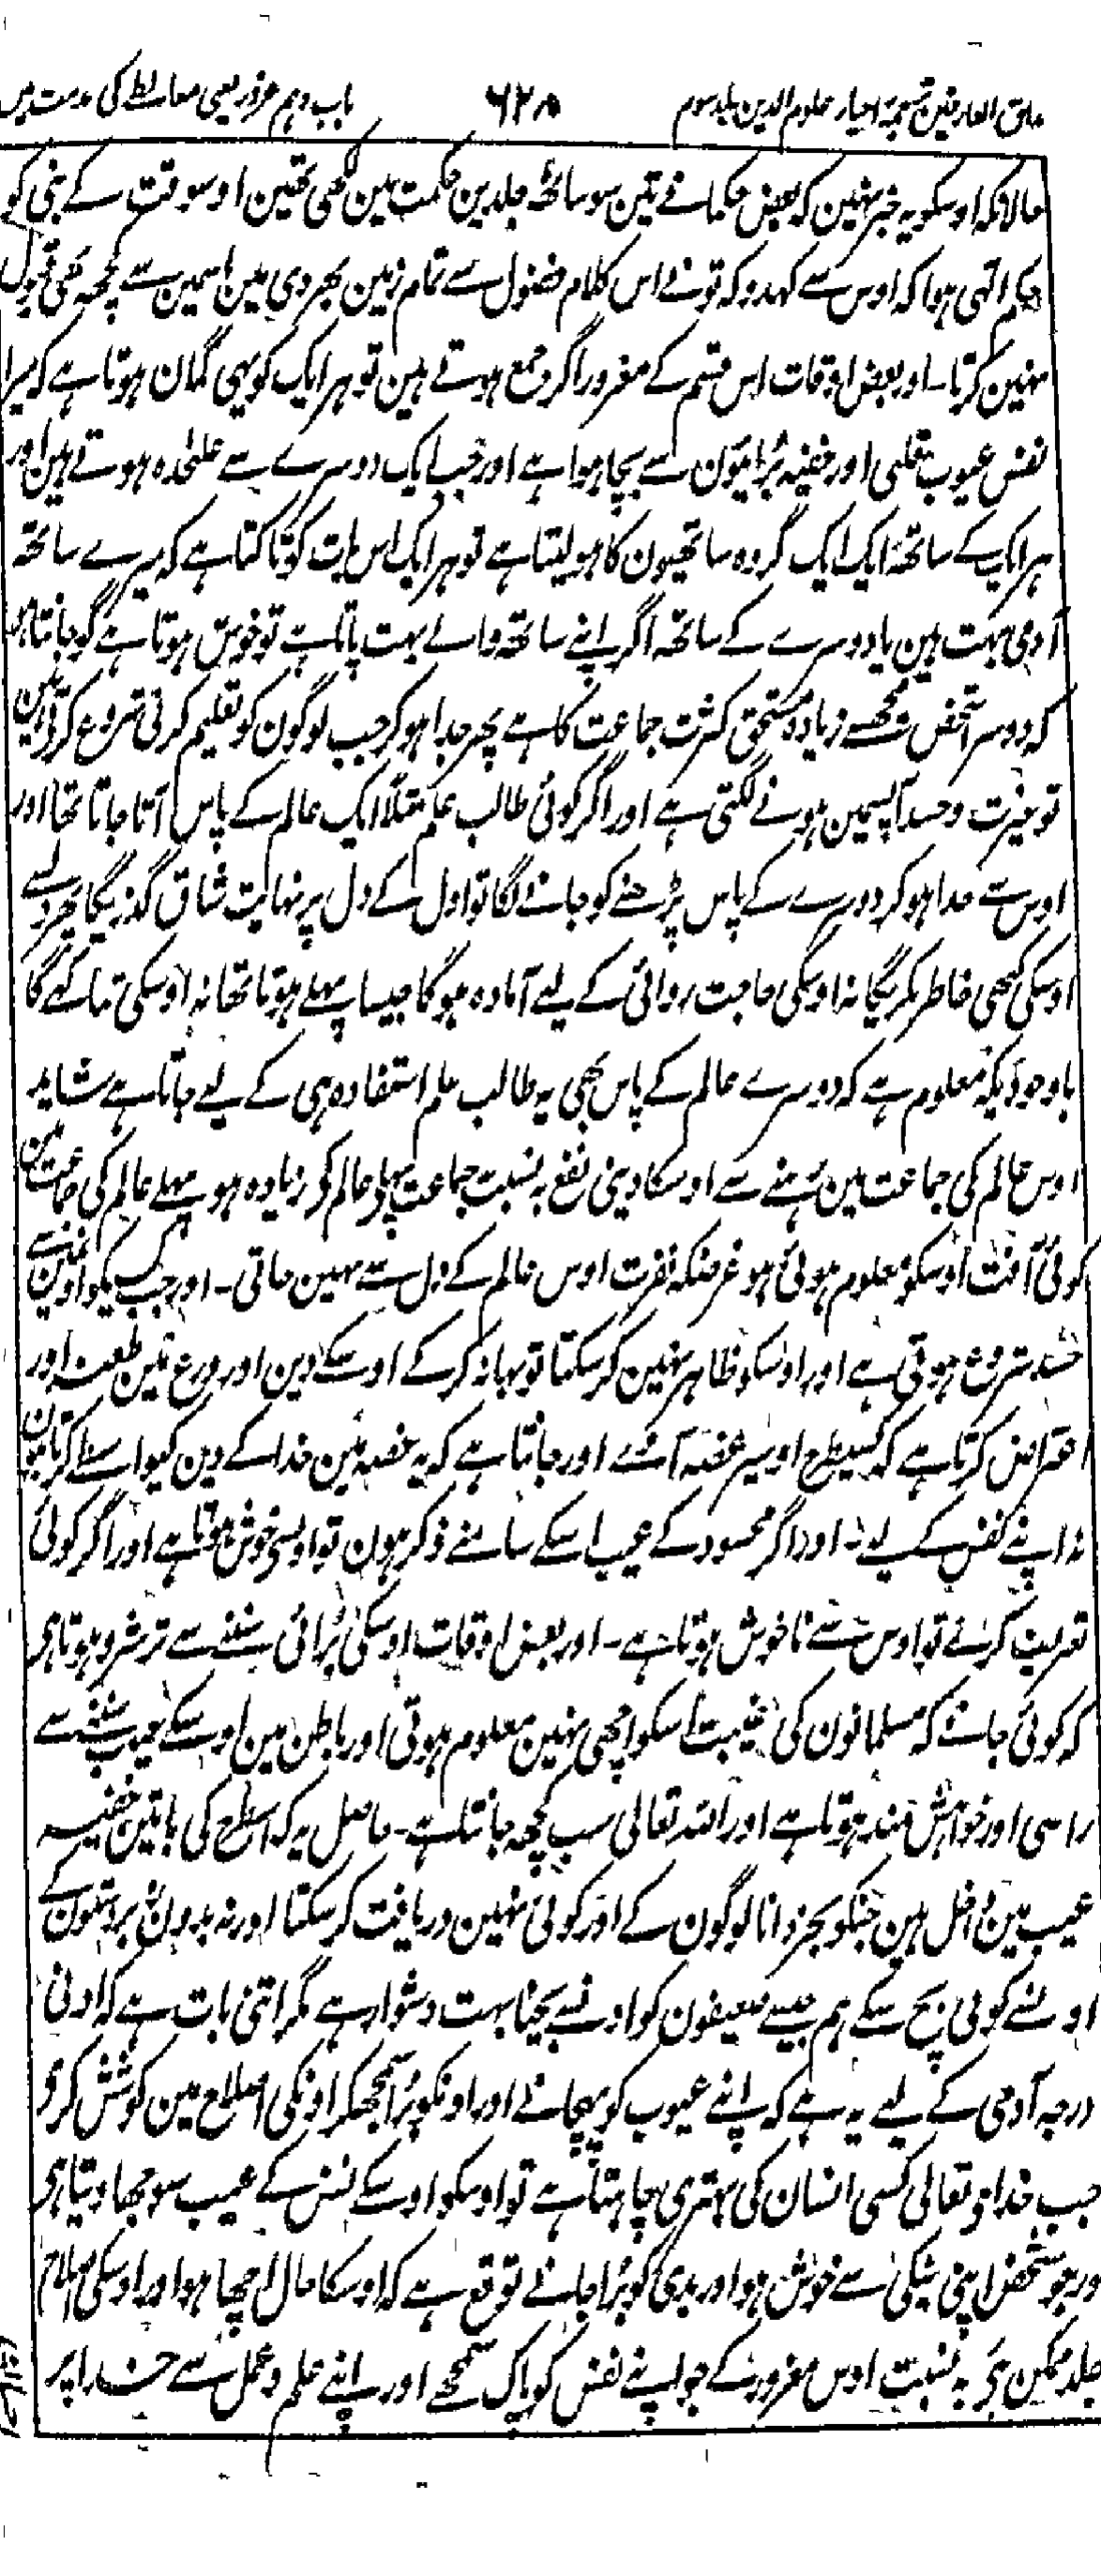 مذاق العارفین ترجمہ احیاء علوم الدین جلد سوم ۶۲۸ باب دہم غرور یعنی مغالطے کی مذمت میں
حالانکہ اوسکو یہ خبر نہین کہ بعض حکما نے تین سو ساٹھہ جلدین حکمت مین لکھی تھین اوسوقت کے نبی کو
حکم الٰہی ہوا کہ اوس سے کہدو کہ تو نے اس کلام فضول سے تمام زمین بھر دی مین اسمین سے کچھہ بھی قبول
نہین کرتا۔ اور بعض اوقات اس قسم کے مغرور اگر جمع ہوتے ہین تو ہر ایک کو یہی گمان ہوتا ہے کہ میرا
نفس عیوب قلبی اور خفیہ برائیون سے بچا ہوا ہے اور جب ایک دوسرے سے علحٰدہ ہوتے ہین اور
ہر ایک کے ساتھہ ایک ایک گروہ ساتھیون کا ہو لیتا ہے تو ہر ایک اس بات کو تاکتا ہے کہ میرے ساتھہ
آدمی بہت ہین یا دوسرے کے ساتھہ اگر اپنے ساتھہ والے بہت پاتا ہے تو خوش ہوتا ہے گو جانتا ہو
کہ دوسرا شخص مجھسے زیادہ مستحق کثرت جماعت کا ہے پھر جدا ہو کر جب لوگون کو تعلیم کرنی شروع کرتے ہین
تو غیرت و حسد آپسمین ہونے لگتی ہے اور اگر کوئی طالب علم مثلاً ایک عالم کے پاس آتا جاتا تھا اور
اوس سے جدا ہو کر دوسرے کے پاس پڑھنے کو جانے لگا تو اول کے دل پر نہایت شاق گذریگا پھر دل سے
اوسکی کبھی خاطر نکریگا نہ اوسکی حاجت روائی کے لیے آمادہ ہوگا جیسا پہلے ہوتا تھا نہ اوسکی ثنا کہے گا
باوجودیکہ معلوم ہے کہ دوسرے عالم کے پاس بھی یہ طالب علم استفادہ ہی کے لیے جاتا ہے شاید
اوس عالم کی جماعت مین رہنے سے اوسکا دینی نفع بہ نسبت جماعت پہلے عالم کو زیادہ ہو پہلے عالم کی جماعت مین
کوئی آفت اوسکو معلوم ہوئی ہو غرضکہ نفرت اوس عالم کے دل سے نہین جاتی۔ اور جب کسیکو اونمین سے
حسد شروع ہوتی ہے اور اوسکو ظاہر نہین کر سکتا تو بہانہ کر کے اوسکے دین اور ورع مین طعنہ اور
اعتراض کرتا ہے کہ کسیطرح اوسپر غصہ آئے اور جانتا ہے کہ یہ غصہ مین خدا کے دین کیواسطے کرتا ہون
نہ اپنے نفس کے لیے۔ اور اگر محسود کے عیب اسکے سامنے ذکر ہون تو اوسی خوش ہوتا ہے اور اگر کوئی
تعریف کرے تو اوس سے ناخوش ہوتا ہے۔ اور بعض اوقات اوسکی برائی سننے سے ترشرو ہوتا ہی
کہ کوئی جانے کہ مسلمانون کی غیبت اسکو اچھی نہین معلوم ہوتی اور باطن مین اوسکے عیب سننے سے
راضی اور خواہش مند ہوتا ہے اور اللہ تعالی سب کچھہ جانتا ہے۔ حاصل یہ کہ اسطرح کی باتین خفیہ
عیب مین داخل ہین جنکو بجز دانا لوگون کے اور کوئی نہین دریافت کر سکتا اور نہ بدون زبردستون کے
اونسے کوئی بچ سکے ہم جیسے ضعیفون کو اونسے بچنا بہت دشوار ہے مگر اتنی بات ہے کہ ادنی
درجہ آدمی کے لیے یہ ہے کہ اپنے عیوب کو پہچانے اور اونکو برا سمجھکر اونکی اصلاح مین کوشش کری
جب خداے تعالی کسی انسان کی بہتری چاہتا ہے تو اوسکو اوسکے نفس کے عیب سوجھا دیتا ہی
ور جو شخص اپنی نیکی سے خوش ہو اور بدی کو برا جانے توقع ہے کہ اوسکا حال اچھا ہو اور اوسکی اصلاح
جلد ممکن ہی بہ نسبت اوس مغرور کے جو اپنے نفس کو پاک سمجھے اور اپنے علم و عمل سے خدا پر